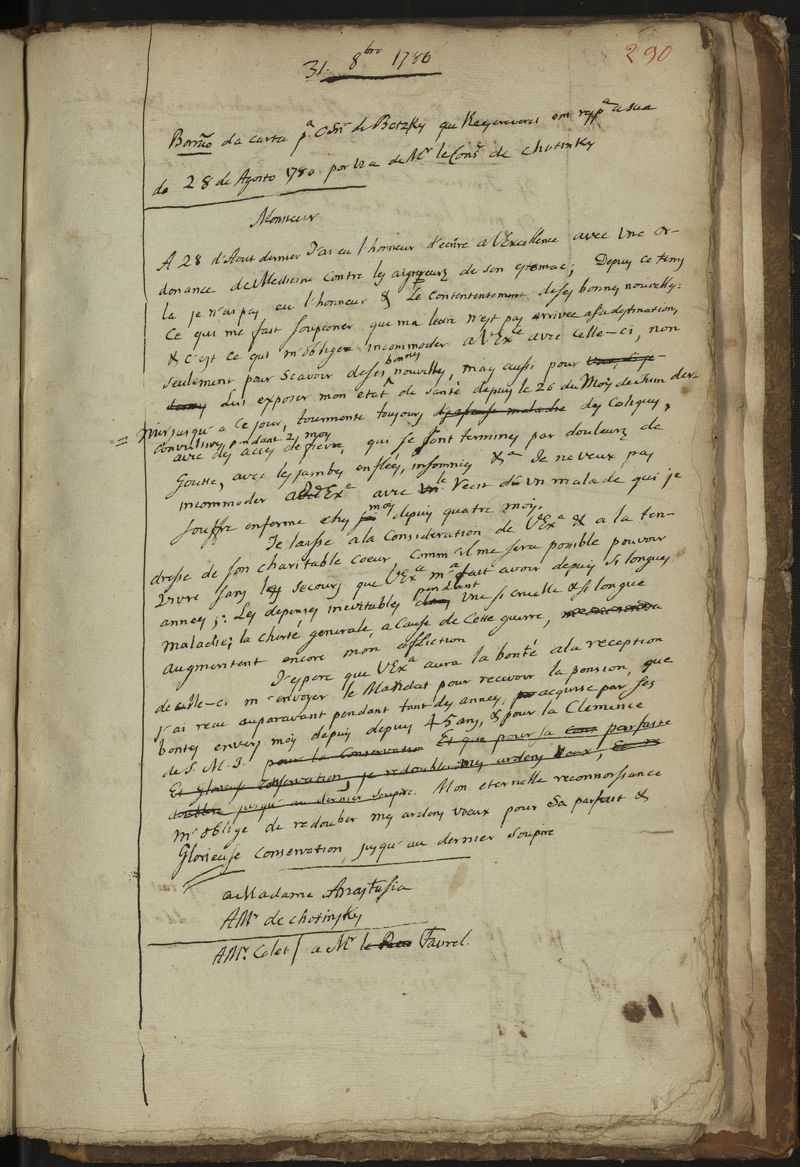 290
31. 8bro 1780
Borrão da carta pa. O Snr de Betzky que em repa a sua
de 28 de Agosto 1780 por via de Mr le Consr de Chotinsky
Monsieur
A 28 d'Aout dernier J'ai eu l'honneur d'ecrire a VExcellence avec Une or-
donance de Medecine contre les aigreurs de son estomac; Depuis ce tems
la je n'ai pas eu l'honneur & le Contentement de ses bonnes nouvelles:
Ce qui me fait soupconer que ma letre n'est pas arrivee a sa destination,
& c'est ce qui m'oblige incommoder a VExe avec celle-ci, non
seulement pour scavoir de ses bonnes nouvelles, mais aussi pour
lui exposer mon etat de santé depuis le 26 du Mois de Juin der-
= nier jusqu'a ce jour, tourmente toujours des Coliques,
Convulsives pendant 2 moy
avec des acces de fievre, qui se sont termines par douleurs de
Goutte, avec les jambes enflées, insomnies &a Je ne veux pas
incommoder a VExe avec le recit d'un malade qui je
souffre enfermé chez moy depuis quatre moys.
Je laisse a la Consideration de VExa & a la ten-
dresse de son charitable coeur Comm'il me sera possible pouvoir
vivre sans les secours que VExa m'a fait avoir depuis si longues
années; Les depenses inevitables pendant Une si cruelle & si longue
maladie; la cherté generale, a cause de cette guerre,
augmentent encore mon affliction
J'espere que VExa aura la bonté a la reception
de celle-ci m'envoyer le Mandat pour recevoir la pension, que
j'ai receu auparavant pendant tant des annes, acquise par ses
bontes envers moy depuis depuis 45 ans, & pour la Clemence
de S. M. I. pour la Conservation Et que pour sa parfaite
Et Glorieuse Conservation, je redouble mes ardens voeux,
jusqu'au dernier soupire. Mon eternelle reconnoissance
m'oblige de redoubler mes ardens voeux pour Sa parfait &
Glorieuse Conservation jusqu'au dernier Soupire
a Madame Anastasia
A Mr de Chotinsky
A Mr. Colet a Mr le Favrel